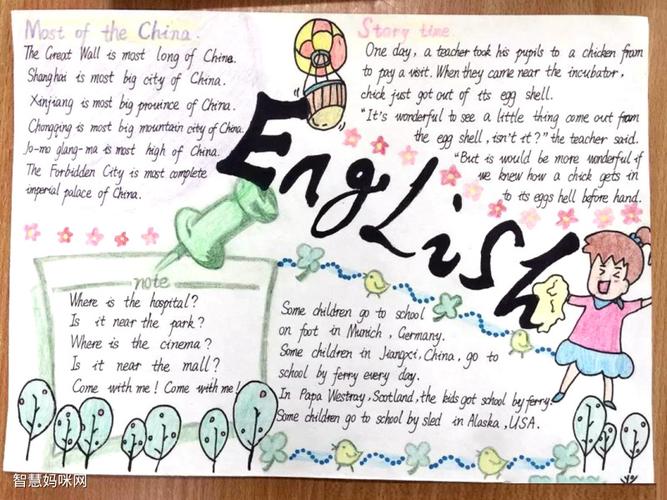 Most of the China.
The Great Wall is most long of China.
Shanghai is most big city of China.
Xinjiang is most big province of China.
Chongqing is most big mountain city of China.
Jo-mo glang-ma is most high of China.
The Forbidden City is most complete
imperial palace of China.
Story time
One day, a teacher took his pupils to a chicken fram
to pay a visit. When they came near the incubator,
chick just got out of its egg shell.
"It's wonderful to see a little thing come out from
the egg shell, isn't it?" the teacher said.
"But is would be more wonderful if
we knew how a chick gets in
to its eggs hell before hand.
English
note
Where is the hospital?
Is it near the park?
Where is the cinema?
Is it near the mall?
Come with me! Come with me!
Some children go to school
on foot in Munich, Germany.
Some children in Jiangxi, China, go to
school by ferry every day.
In Papa Westray, Scotland, the kids got school by ferry.
Some children go to school by sled in Alaska, USA.
智慧妈咪网